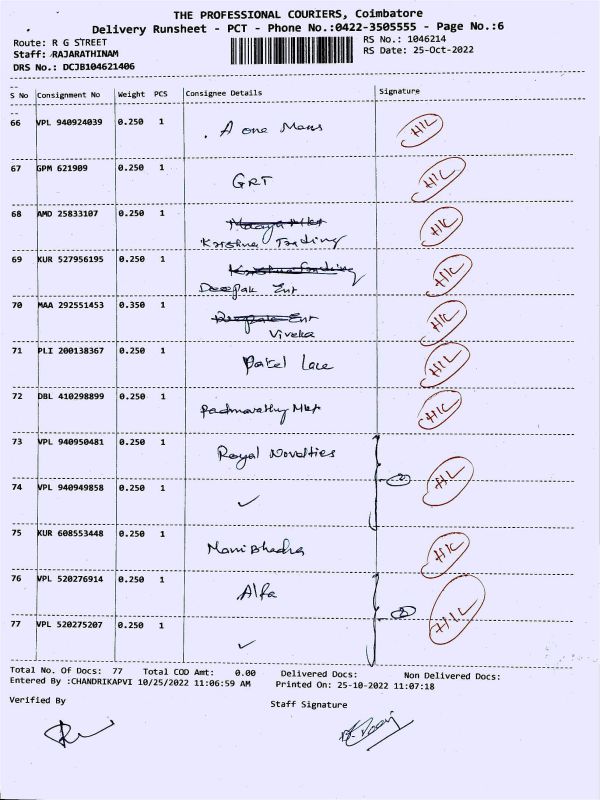 THE PROFESSIONAL COURIERS, Coimbatore
Delivery Runsheet - PCT - Phone No.:0422-3505555 - Page No.:6
Route: R G STREET
RS No.: 1046214
Staff: RAJARATHINAM
RS Date: 25-Oct-2022
DRS No.: DCJB104621406
S No Consignment No Weight PCS Consignee Details Signature
66 VPL 940924039 0.250 1 A one Mens H/L
67 GPM 621909 0.250 1 GRT H/L
68 AMD 25833107 0.250 1 H/L
Krishna Trading
69 KUR 527956195 0.250 1 Krishna Trading H/L
Deepak Ent
70 MAA 292551453 0.350 1 Deepak Ent H/L
Viveka
71 PLI 200138367 0.250 1 Patel Lace H/L
72 DBL 410298899 0.250 1 Padmavathy Mkt H/L
73 VPL 940950481 0.250 1 Royal Novalties
74 VPL 940949858 0.250 1 ✓ 2 H/L
75 KUR 608553448 0.250 1 Mani Bhadra H/L
76 VPL 520276914 0.250 1 Alfa
77 VPL 520275207 0.250 1 ✓ 2 H/L
Total No. Of Docs: 77 Total COD Amt: 0.00 Delivered Docs: Non Delivered Docs:
Entered By :CHANDRIKAPVI 10/25/2022 11:06:59 AM Printed On: 25-10-2022 11:07:18
Verified By
Staff Signature